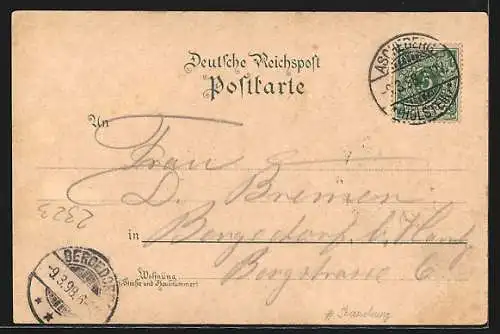 Deutsche Reichspost
Postkarte
ASCHEBERG
(HOLSTEIN)
5
An
Frau
D. Bremen
in Bergedorf b. Hamg
Wohnung
(Straße und Hausnummer)
Bergstrasse 6
2323
BERGEDORF
-9.3.98.